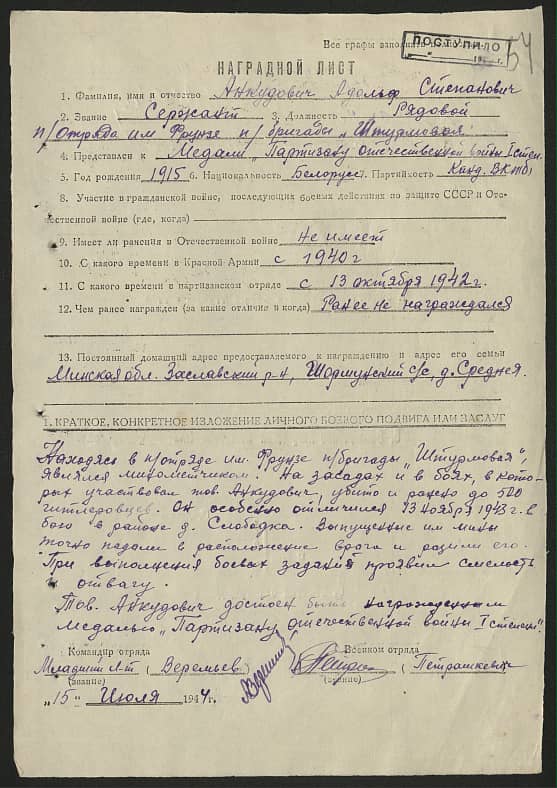 Все графы заполнять
ПОСТУПИЛО
54
НАГРАДНОЙ ЛИСТ
1. Фамилия, имя и отчество Анкудович Адольф Степанович
2. Звание Сержант 3. Должность Рядовой
п/отряда им Фрунзе п/бригады „Штурмовая"
4. Представлен к Медали „Партизану отечественной войны I степ.
5. Год рождения 1915 6. Национальность Белорус 7. Партийность Канд. ВКП(б)
8. Участие в гражданской войне, последующих боевых действиях по защите СССР и Оте-
чественной войне (где, когда)
9. Имеет ли ранения в Отечественной войне Не имеет
10. С какого времени в Красной Армии с 1940г
11. С какого времени в партизанском отряде с 13 октября 1942г.
12. Чем ранее награжден (за какие отличия и когда) Ранее не награждался
13. Постоянный домашний адрес предоставляемого к награждению и адрес его семьи
Минская обл. Заславский р-н, с/с, д. Средняя.
1. КРАТКОЕ, КОНКРЕТНОЕ ИЗЛОЖЕНИЕ ЛИЧНОГО БОЕВОГО ПОДВИГА ИЛИ ЗАСЛУГ
Находясь в п/отряде им. Фрунзе п/бригады „Штурмовая",
являлся минометчиком. На засадах и в боях, в кото-
рых участвовал тов. Анкудович, убито и ранено до 500
гитлеровцев. Он особенно отличился 13 ноября 1943 г. в
бою в районе д. Слободка. Выпущенные им мины
точно падали в расположение врага и разили его.
При выполнении боевых заданий проявил смелость
и отвагу.
Тов. Анкудович достоен быть награжденным
медалью „Партизану отечественной войны I степени".
Командир отряда Военком отряда
Младший л-т (Веремьев) (Петрашкевич
(звание) (звание)
„15" Июля 1944 г.